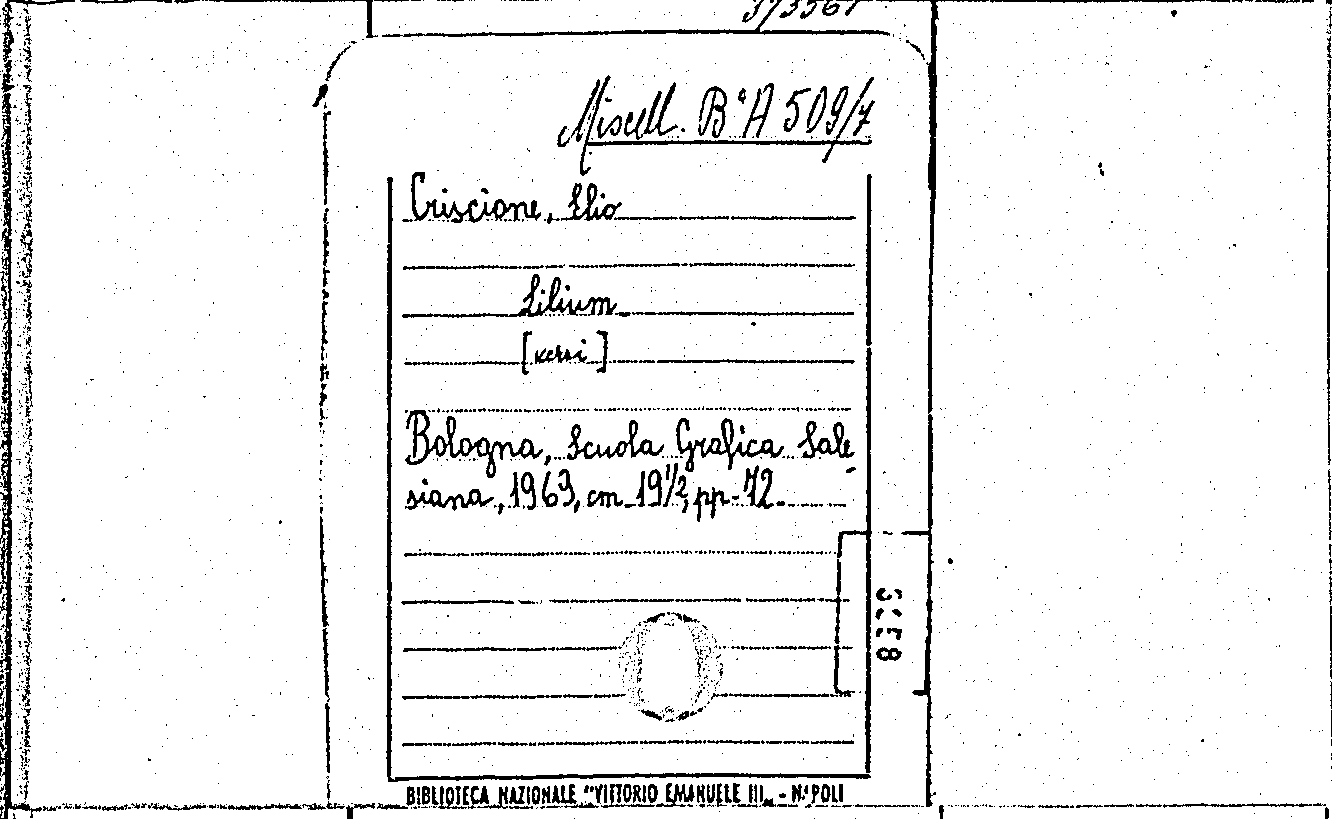 373561
Miscell. Bª A 509/7
Criscione, Elio
Lilium
[versi]
Bologna, Scuola Grafica Sale
siana, 1963, cm 19½, pp. 72.
BIBLIOTECA NAZIONALE "VITTORIO EMANUELE III„ - NAPOLI